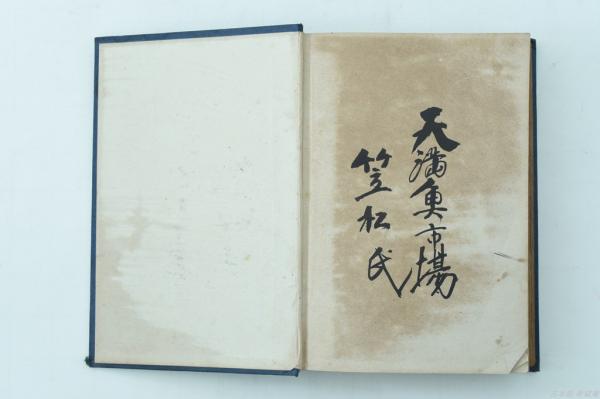 天満魚市場
笠松氏